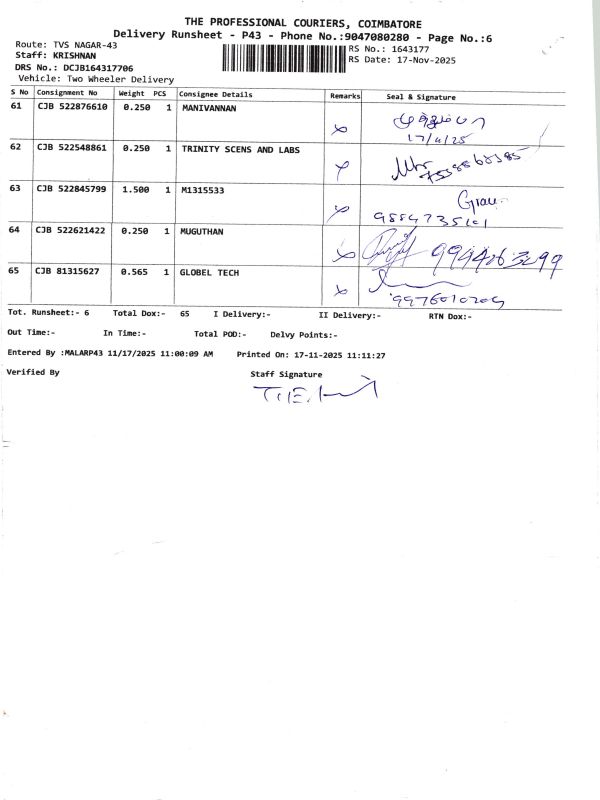 THE PROFESSIONAL COURIERS, COIMBATORE
Delivery Runsheet - P43 - Phone No.:9047080280 - Page No.:6
Route: TVS NAGAR-43
RS No.: 1643177
Staff: KRISHNAN
RS Date: 17-Nov-2025
DRS No.: DCJB164317706
Vehicle: Two Wheeler Delivery
S No Consignment No Weight PCS Consignee Details Remarks Seal & Signature
61 CJB 522876610 0.250 1 MANIVANNAN
17/11/25
62 CJB 522548861 0.250 1 TRINITY SCENS AND LABS
63 CJB 522845799 1.500 1 M1315533
64 CJB 522621422 0.250 1 MUGUTHAN
65 CJB 81315627 0.565 1 GLOBEL TECH
Tot. Runsheet:- 6 Total Dox:- 65 I Delivery:- II Delivery:- RTN Dox:-
Out Time:- In Time:- Total POD:- Delvy Points:-
Entered By :MALARP43 11/17/2025 11:00:09 AM Printed On: 17-11-2025 11:11:27
Verified By Staff Signature